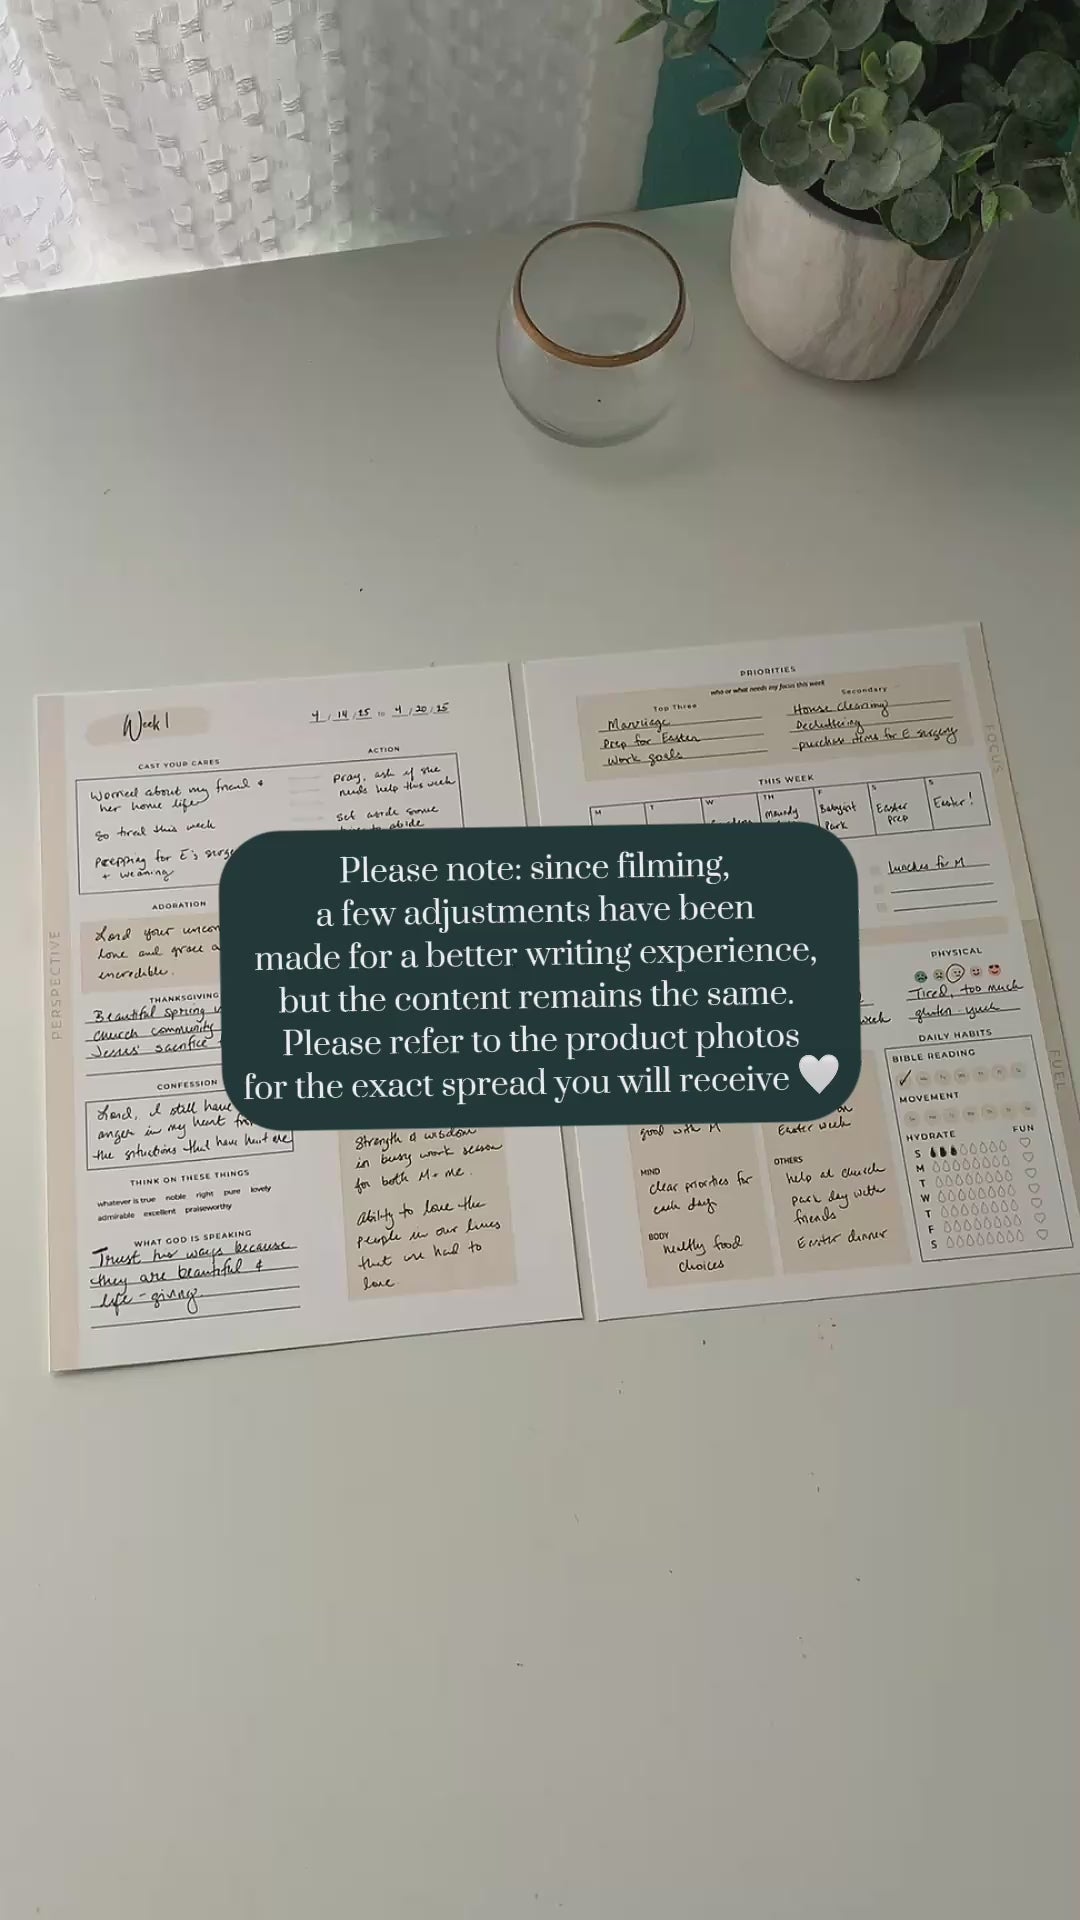 Week 1
4 / 14 / 25 to 4 / 20 / 25
CAST YOUR CARES
Worried about my friend &
her home life
so tired this week
Prepping for E's surge
+ weaning
ACTION
pray, ask if she
needs help this week
set aside some
time to abide
ADORATION
Lord your uncon
love and grace a
incredible.
THANKSGIVING
Beautiful Spring
church community
Jesus' sacrifice
CONFESSION
Lord, I still have
anger in my heart
the situations that have hurt me
THINK ON THESE THINGS
whatever is true noble right pure lovely
admirable excellent praiseworthy
WHAT GOD IS SPEAKING
Trust his ways because
they are beautiful &
life-giving
Strength & wisdom
in busy work season
for both M + me.
ability to love the
people in our lives
that are hard to
love.
PERSPECTIVE
PRIORITIES
who or what needs my focus this week
Top Three
Marriage
Prep for Easter
Work goals
Secondary
House cleaning
Decluttering
purchase items for E surgery
FOCUS
THIS WEEK
M T W TH F S S
Maundy
Babysit
Park
Easter
Prep
Easter!
lunches for M
Please note: since filming,
a few adjustments have been
made for a better writing experience,
but the content remains the same.
Please refer to the product photos
for the exact spread you will receive 🤍
week
PHYSICAL
Tired, too much
gluten-yuck
good with M
MIND
clear priorities for
each day
BODY
healthy food
choices
on
Easter week
OTHERS
help at church
park day with
friends
Easter dinner
DAILY HABITS
BIBLE READING
MOVEMENT
HYDRATE
FUN
S
M
T
W
T
F
S
FUEL